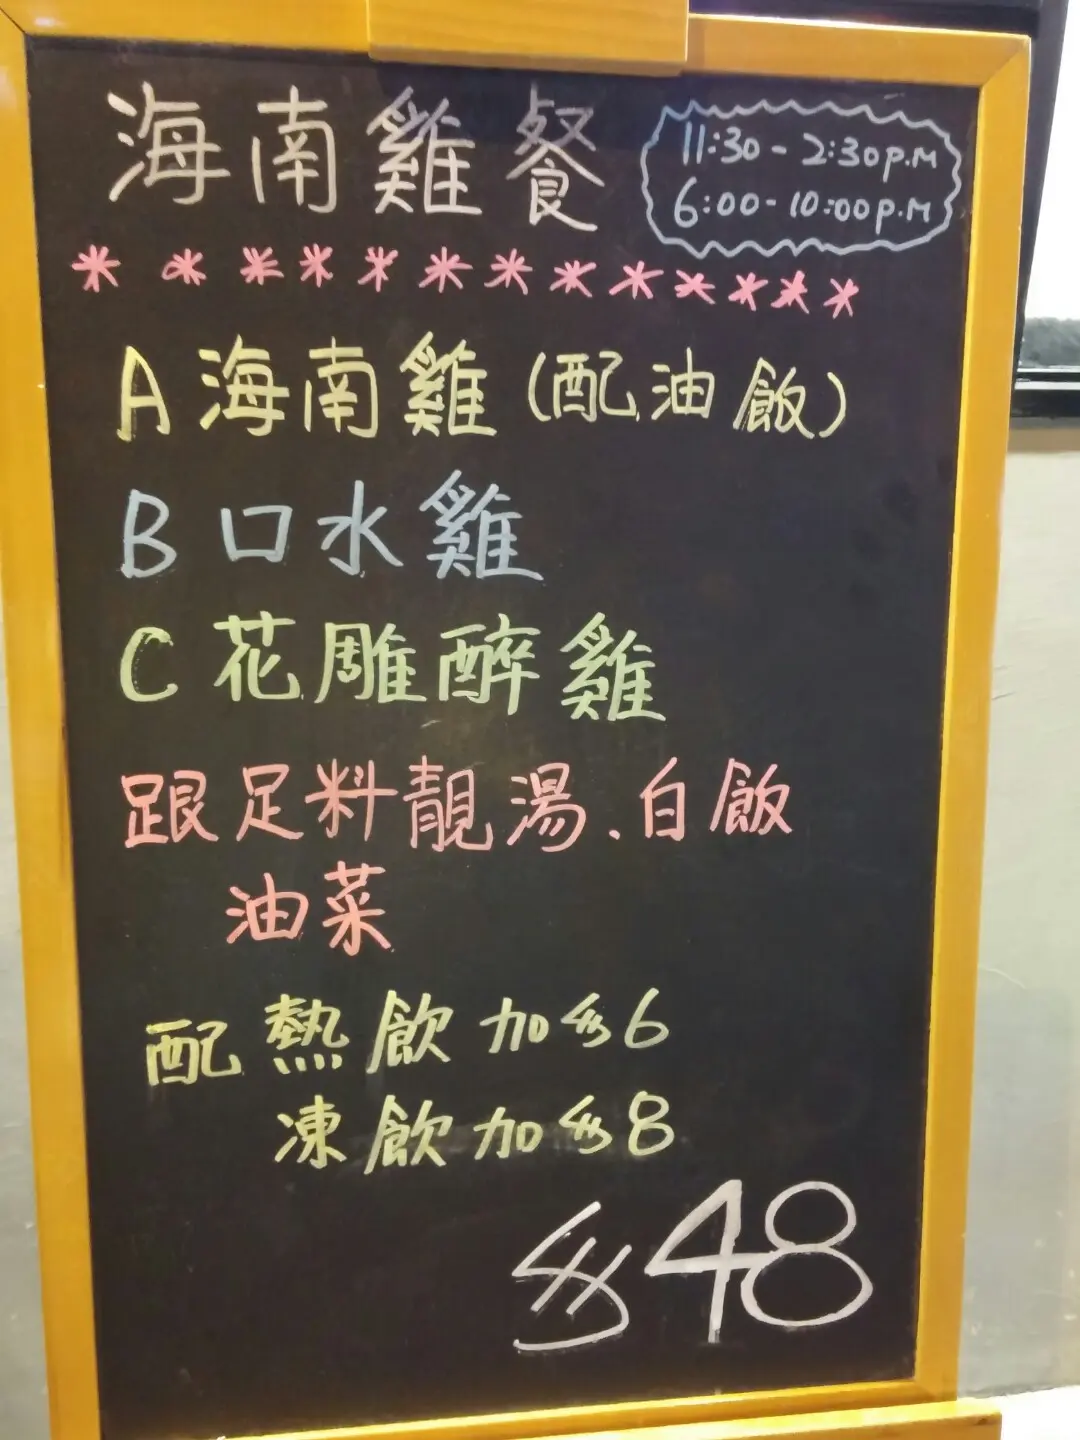 海南雞餐
11:30 - 2:30p.M
6:00 - 10:00p.M
* * * * * * * * * * * * *
A 海南雞 (配油飯)
B 口水雞
C 花雕醉雞
跟足料靚湯、白飯
油菜
配 熱飲加$6
凍飲加$8
$48